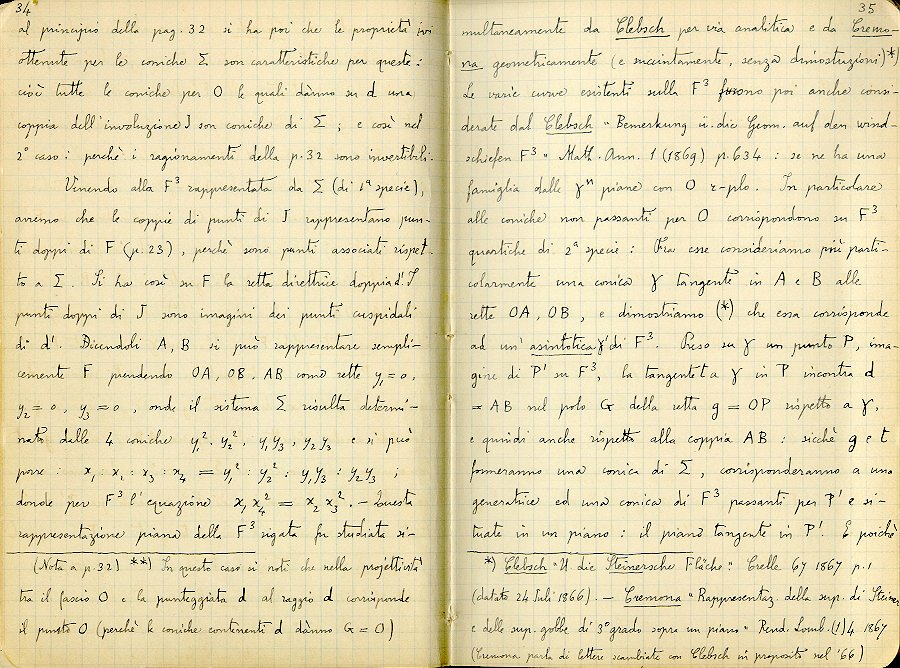 34
al principio della pag. 32 si ha poi che le proprietà ivi
ottenute per le coniche Σ son caratteristiche per queste:
cioè tutte le coniche per O le quali dànno su d una
coppia dell'involuzione J son coniche di Σ; e così nel
2° caso: perchè i ragionamenti della p. 32 sono invertibili.
Venendo alla F³ rappresentata da Σ (di 1ª specie),
avremo che le coppie di punti di J rappresentano pun-
ti doppi di F (p. 23), perchè sono punti associati rispet-
to a Σ. Si ha così su F la retta direttrice doppia d'. I
punti doppi di J sono imagini dei punti cuspidali
di d'. Dicendoli A, B si può rappresentare sempli-
cemente F prendendo OA, OB, AB come rette y₁=0,
y₂=0, y₃=0, onde il sistema Σ risulta determi-
nato dalle 4 coniche y₁², y₂², y₁y₃, y₂y₃ e si può
porre: x₁ : x₂ : x₃ : x₄ = y₁² : y₂² : y₁y₃ : y₂y₃ ;
donde per F³ l'equazione x₁x₄² = x₂x₃². – Questa
rappresentazione piana della F³ rigata fu studiata si-
(Nota a p. 32) **) In questo caso si noti che nella projettività
tra il fascio O e la punteggiata d al raggio d corrisponde
il punto O (perchè le coniche contenenti d dànno G = O)
35
multaneamente da Clebsch per via analitica e da Cremo-
na geometricamente (e succintamente, senza dimostrazioni)*)
Le varie curve esistenti sulla F³ furono poi anche consi-
derate dal Clebsch "Bemerkung ü. die Geom. auf den wind-
schiefen F³" Math. Ann. 1 (1869) p. 634 : se ne ha una
famiglia dalle γⁿ piane con O r-plo. In particolare
alle coniche non passanti per O corrispondono su F³
quartiche di 2ª specie: Fra esse consideriamo più parti-
colarmente una conica γ tangente in A e B alle
rette OA, OB, e dimostriamo (*) che essa corrisponde
ad un'asintotica γ' di F³. Preso su γ un punto P, ima-
gine di P' su F³, la tangente t a γ in P incontra d
= AB nel polo G della retta g = OP rispetto a γ,
e quindi anche rispetto alla coppia AB: sicchè g e t
formeranno una conica di Σ, corrisponderanno a una
generatrice ed una conica di F³ passanti per P' e si-
tuate in un piano: il piano tangente in P'. E poichè
*) Clebsch "Ü. die Steinersche Fläche". Crelle 67 1867 p. 1
(datato 24 Juli 1866). – Cremona "Rappresentaz. della sup. di Steiner
e delle sup. gobbe di 3° grado sopra un piano" Rend. Lomb. (1) 4 1867
(Cremona parla di lettere scambiate con Clebsch in proposito nel '66)